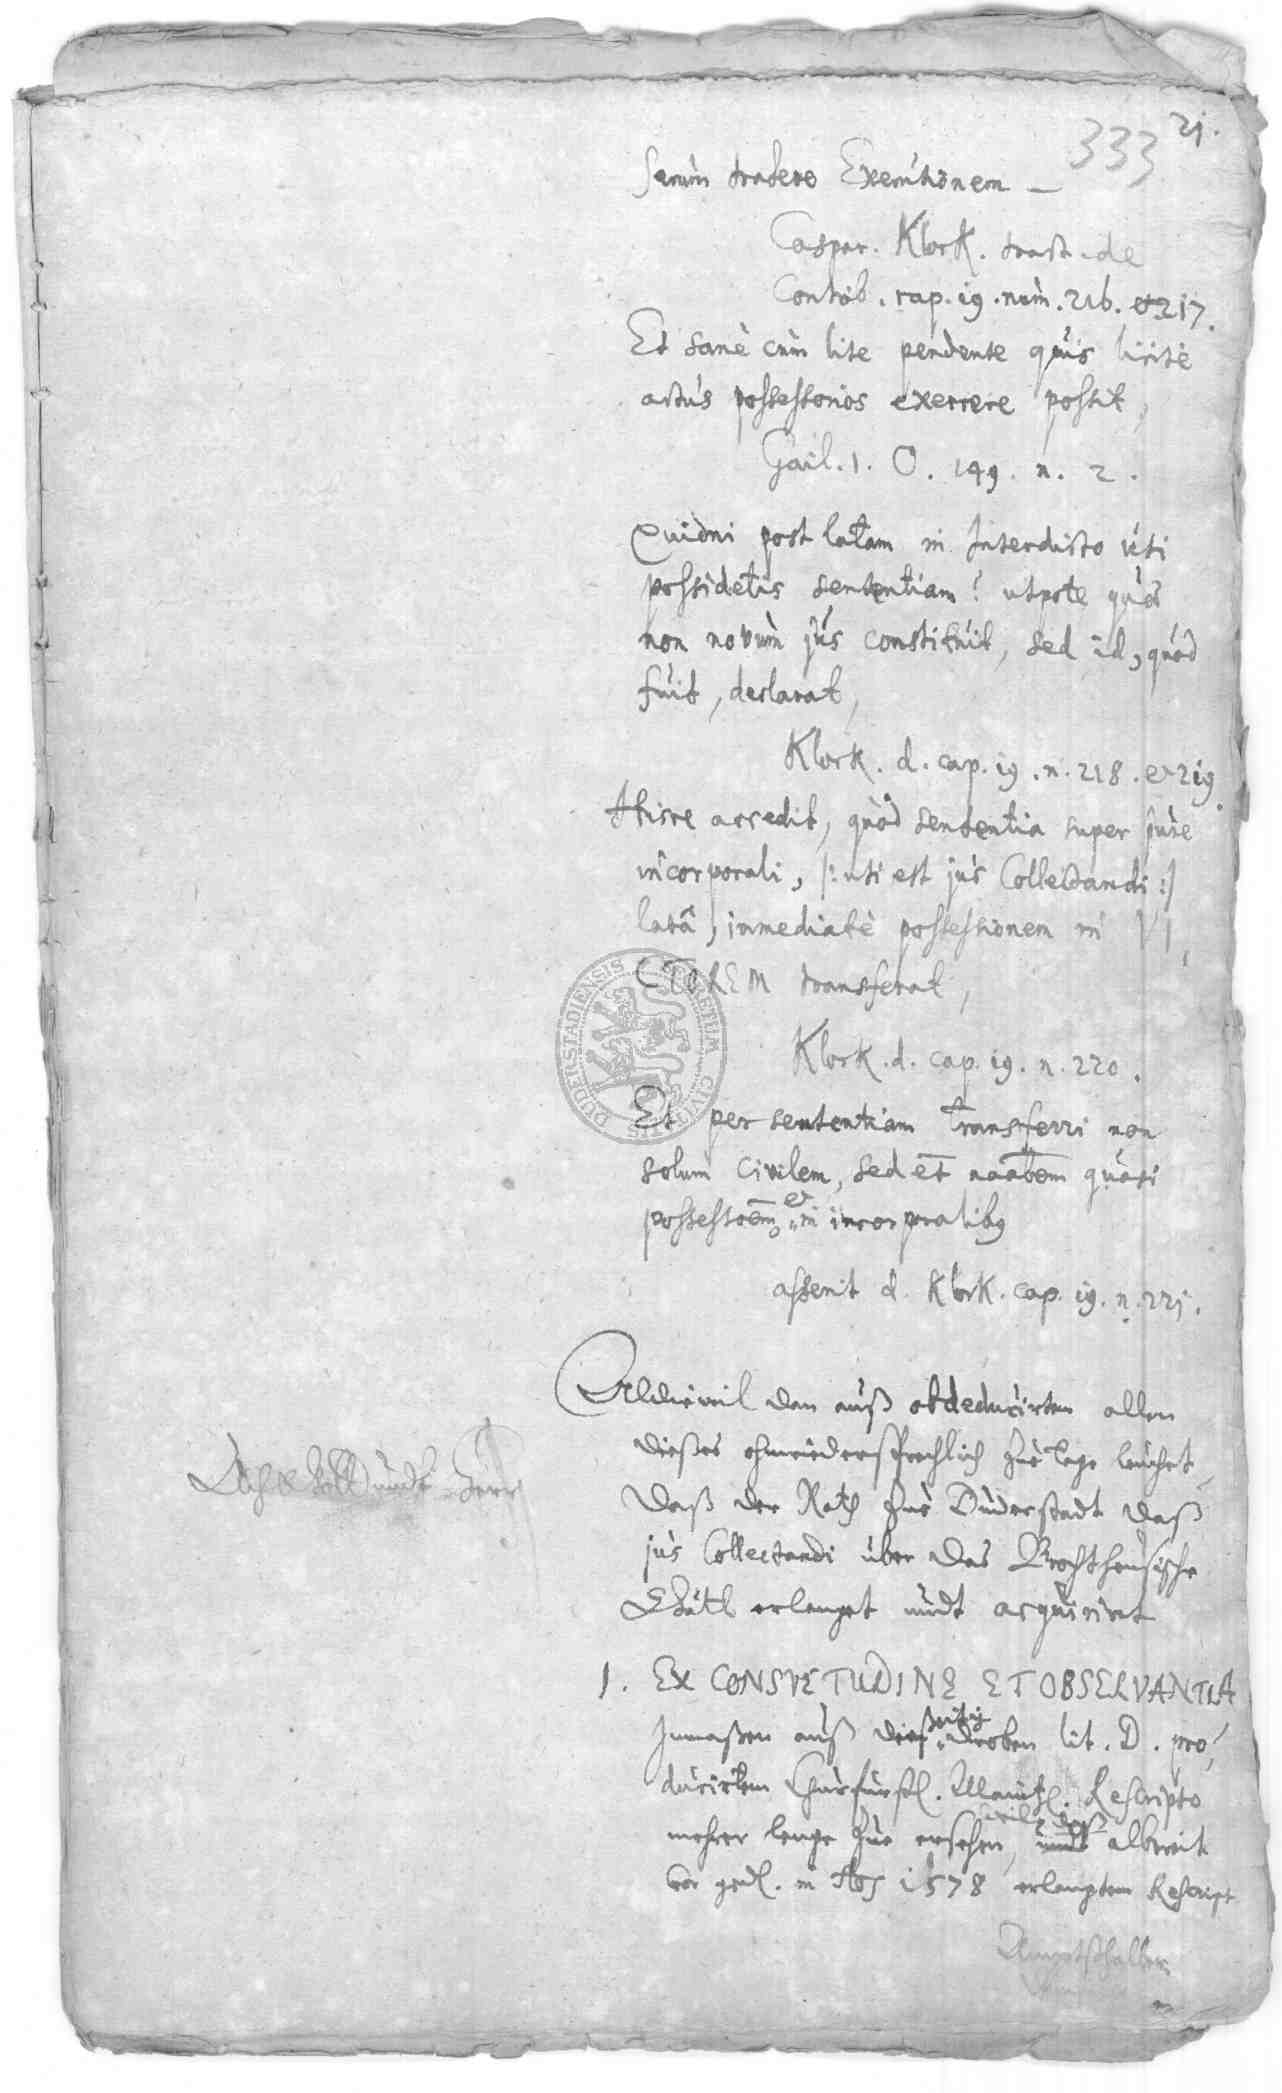 333 21.
secum trahere Executionem —
Caspar. Klock. tract. de
Contrib. cap. 19. num. 216. et 217.
Et sanè cùm lite pendente quis licitè
actus possessorios exercere possit,
Gail. 1. O. 149. n. 2.
Quidni post latam in Interdicto uti
possidetis sententiam? utpote quæ
non novum jus constituit, sed id, quod
fuit, declarat,
Klock. d. cap. 19. n. 218. et 219.
Hisce accedit, quòd sententia super jure
incorporali, |: uti est jus Collectandi :|
latâ, immediatè possessionem in VI,
CTOREM transferat,
Klock. d. cap. 19. n. 220.
Et per sententiam transferri non
solum civilem, sed et naālem quasi
possessōem, et in incorporalibꝫ
asserit d. Klock. cap. 19. n. 221.
Aldieweil dan auß obdeducirten allen
dießes ohnwiedersprechlich zue tage leuchtet
Daß der Rath zue Duderstadt daß
jus Collectandi über das
erlanget undt acquiriret
1. EX CONSVETUDINE ET OBSERVANTIA
Inmaßen auß droben lit. D. pro,
ducirtem Churfürstl. Maintzl. Rescripto
mehrer lenge zue ersehen, undt albereit
vor in Aō 1578 erlangtem Rescript
DUDERSTADIENSIS CIVITATIS